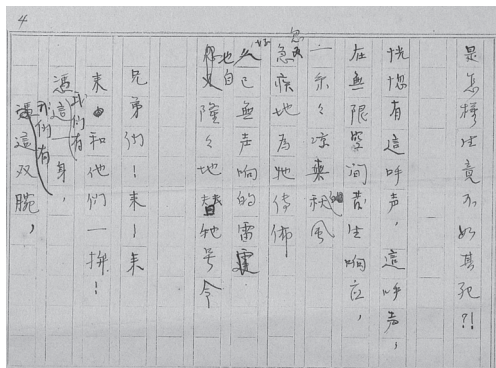 4
是怎樣生竟不如其死?!
恍惚有這呼声，這呼声，
在無限空间發生响应，
一糸々凉爽的秋風
忽又急疾地為牠傳佈
好久已無声响的雷霆
也自隆々地替牠号令
兄弟们！来！来
来和他们一拚！
憑我们有這一身，
憑我们有這双腕，